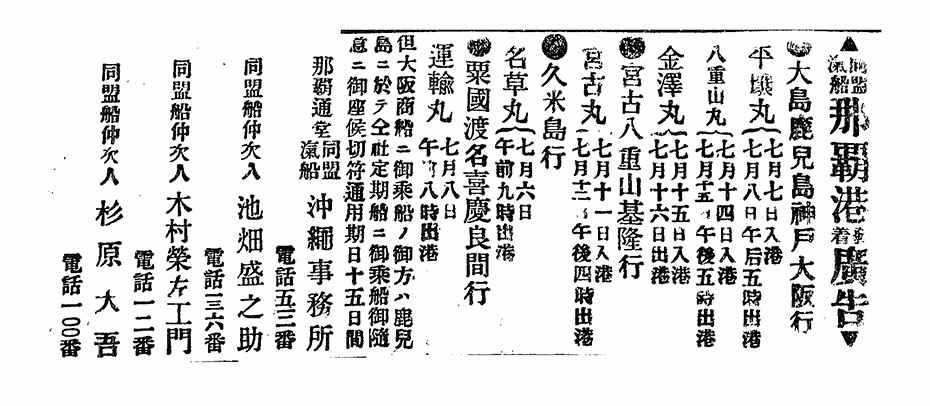 ▲同盟汽船那覇港發着廣告▼
●大島鹿兒島神戸大阪行
平壤丸
七月七日入港
七月八日午后五時出港
八重山丸
七月十四日入港
七月十五日午後五時出港
金澤丸
七月十五日入港
七月十六日出港
●宮古八重山基隆行
宮古丸
七月十一日入港
七月十二日午後四時出港
●久米島行
名草丸
七月六日
午前九時出港
●粟國渡名喜慶良間行
運輸丸
七月八日
午前八時出港
但大阪商船ニ御乘船ノ御方ハ鹿兒
島ニ於テ仝社定期船ニ御乘船御隨
意ニ御座候切符通用期日十五日間
那覇通堂同盟汽船沖繩事務所
電話五三番
同盟船仲次人 池畑盛之助
電話三六番
同盟船仲次人 木村榮左工門
電話一二番
同盟船仲次人 杉原大吾
電話一〇〇番